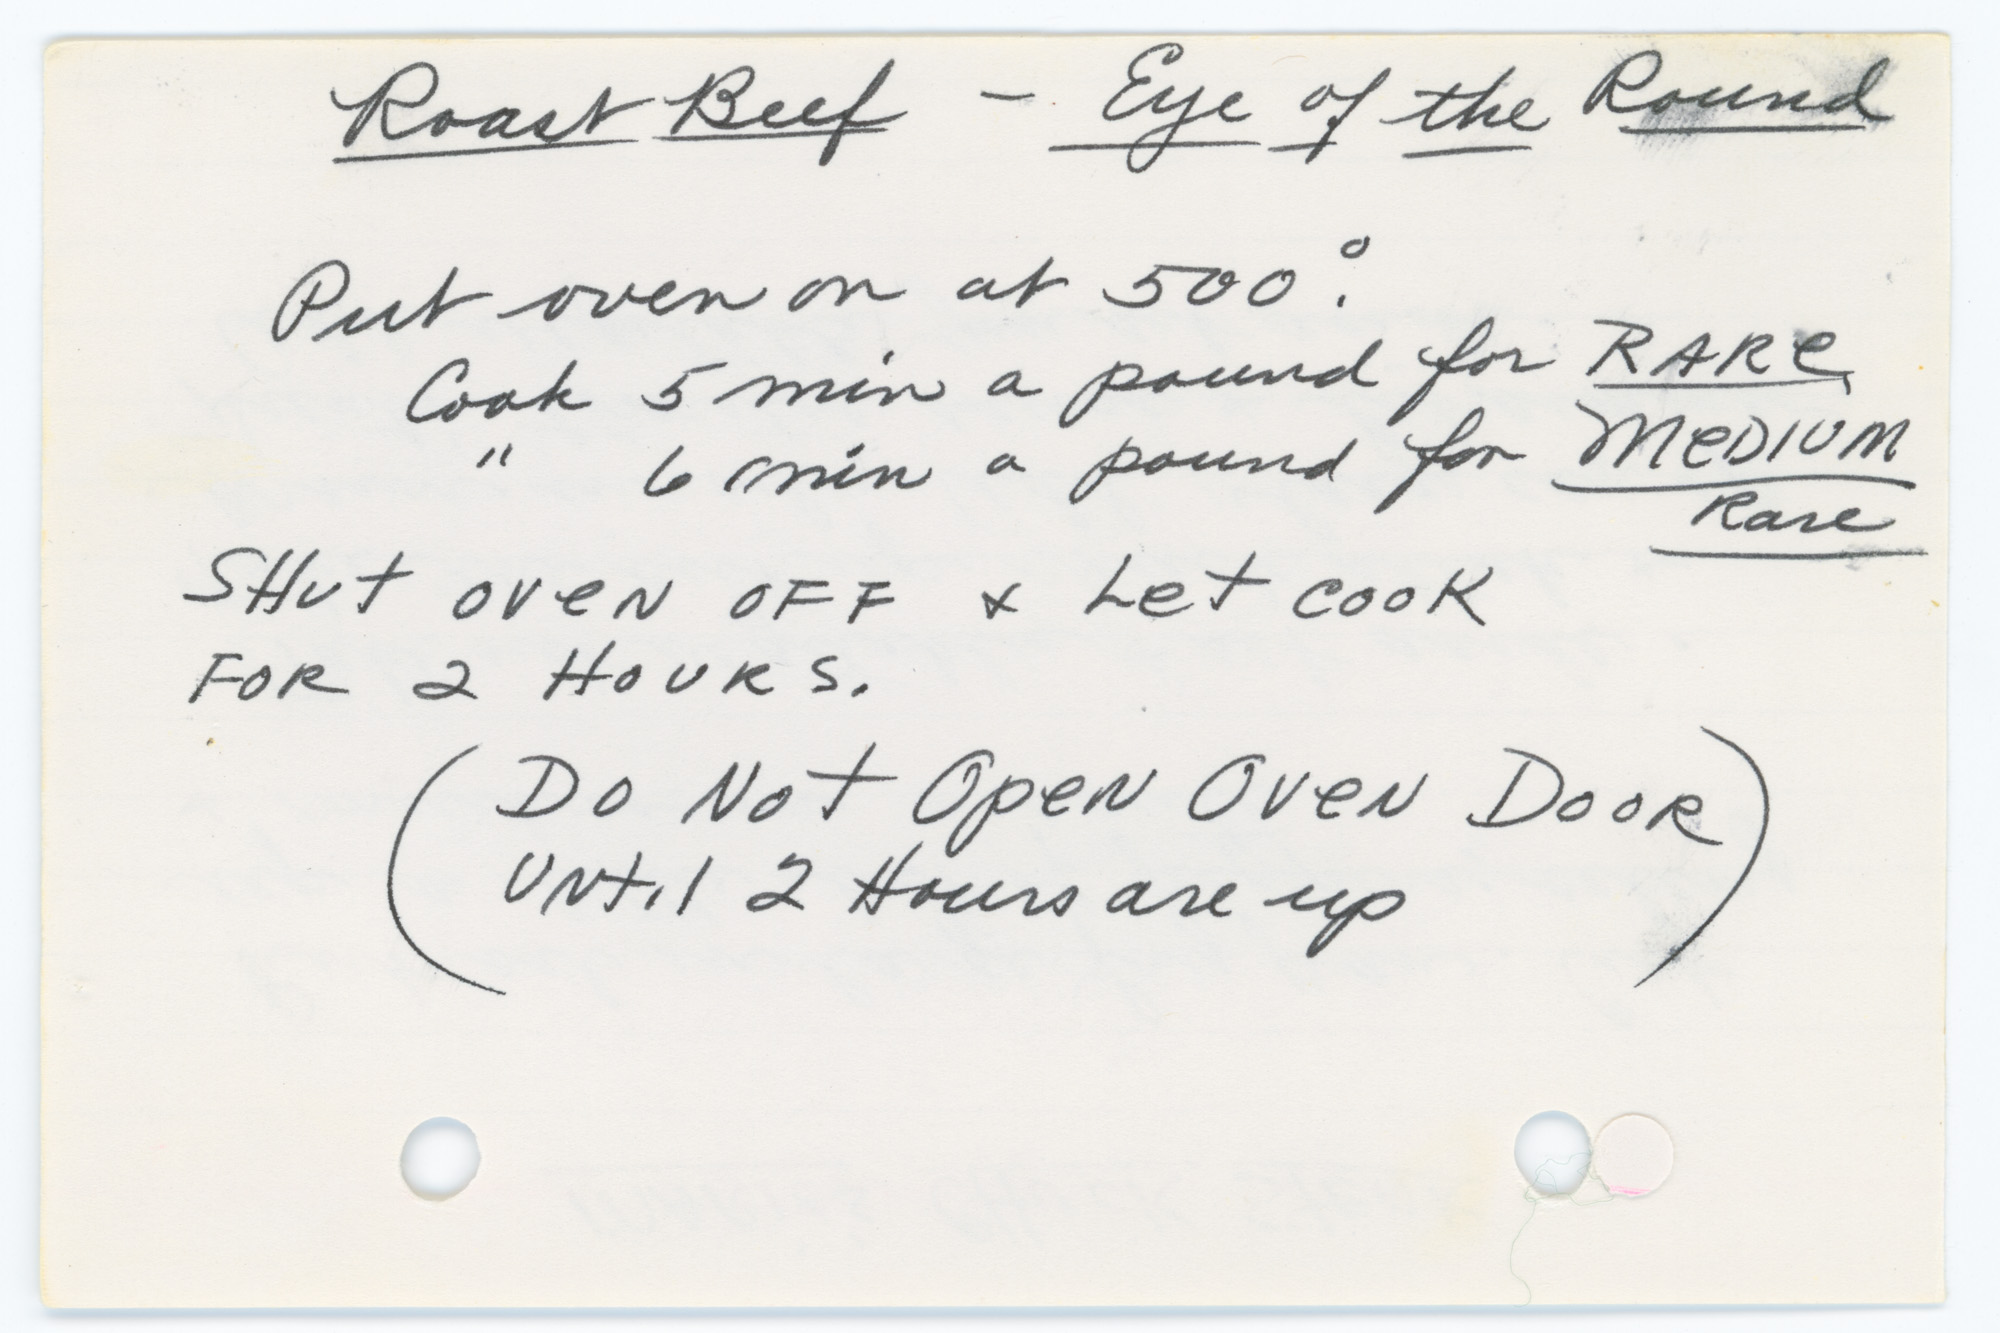 Roast Beef - Eye of the Round
Put oven on at 500°.
Cook 5 min a pound for RARe
" 6 min a pound for MeDIUM
Rare
SHut oveN oFF & Let cooK
FoR 2 HoURS.
(Do Not OpeN OveN DooR
UNtil 2 Hours are up)